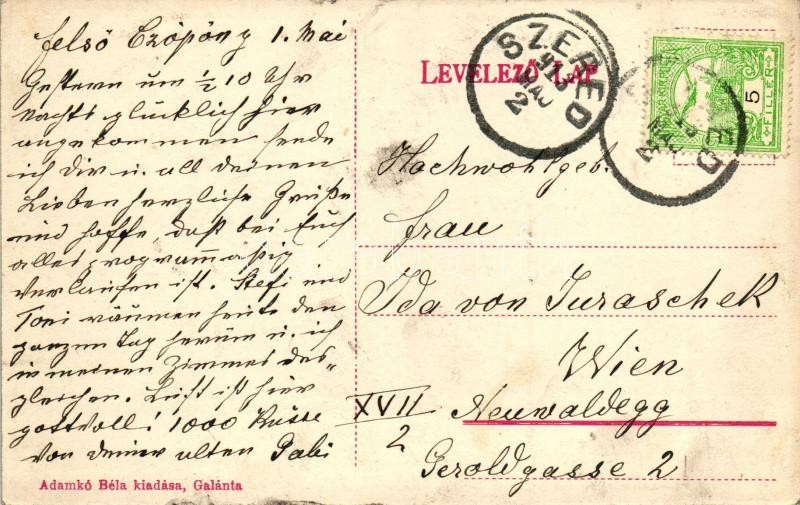 Felső Czöpöny 1. Mai
Gestern um ½ 10 Uhr
nachts glücklich hier
angekommen sende
ich dir u. all deinen
Lieben herzliche Grüße
und hoffe, daß bei Euch
alles programmäßig
verlaufen ist. Stefi und
Toni räumen heute den
ganzen Tag herum u. ich
in meinen Zimmer des-
gleichen. Luft ist hier
gottvoll! 1000 Küsse
von deiner alten Gabi
Adamkó Béla kiadása, Galánta
LEVELEZŐ LAP
SZERED
MAJ
2
5
FILLÉR
Hochwohlgeb.
Frau
Ida von Juraschek
Wien
XVII/2 Neuwaldegg
Geroldgasse 2